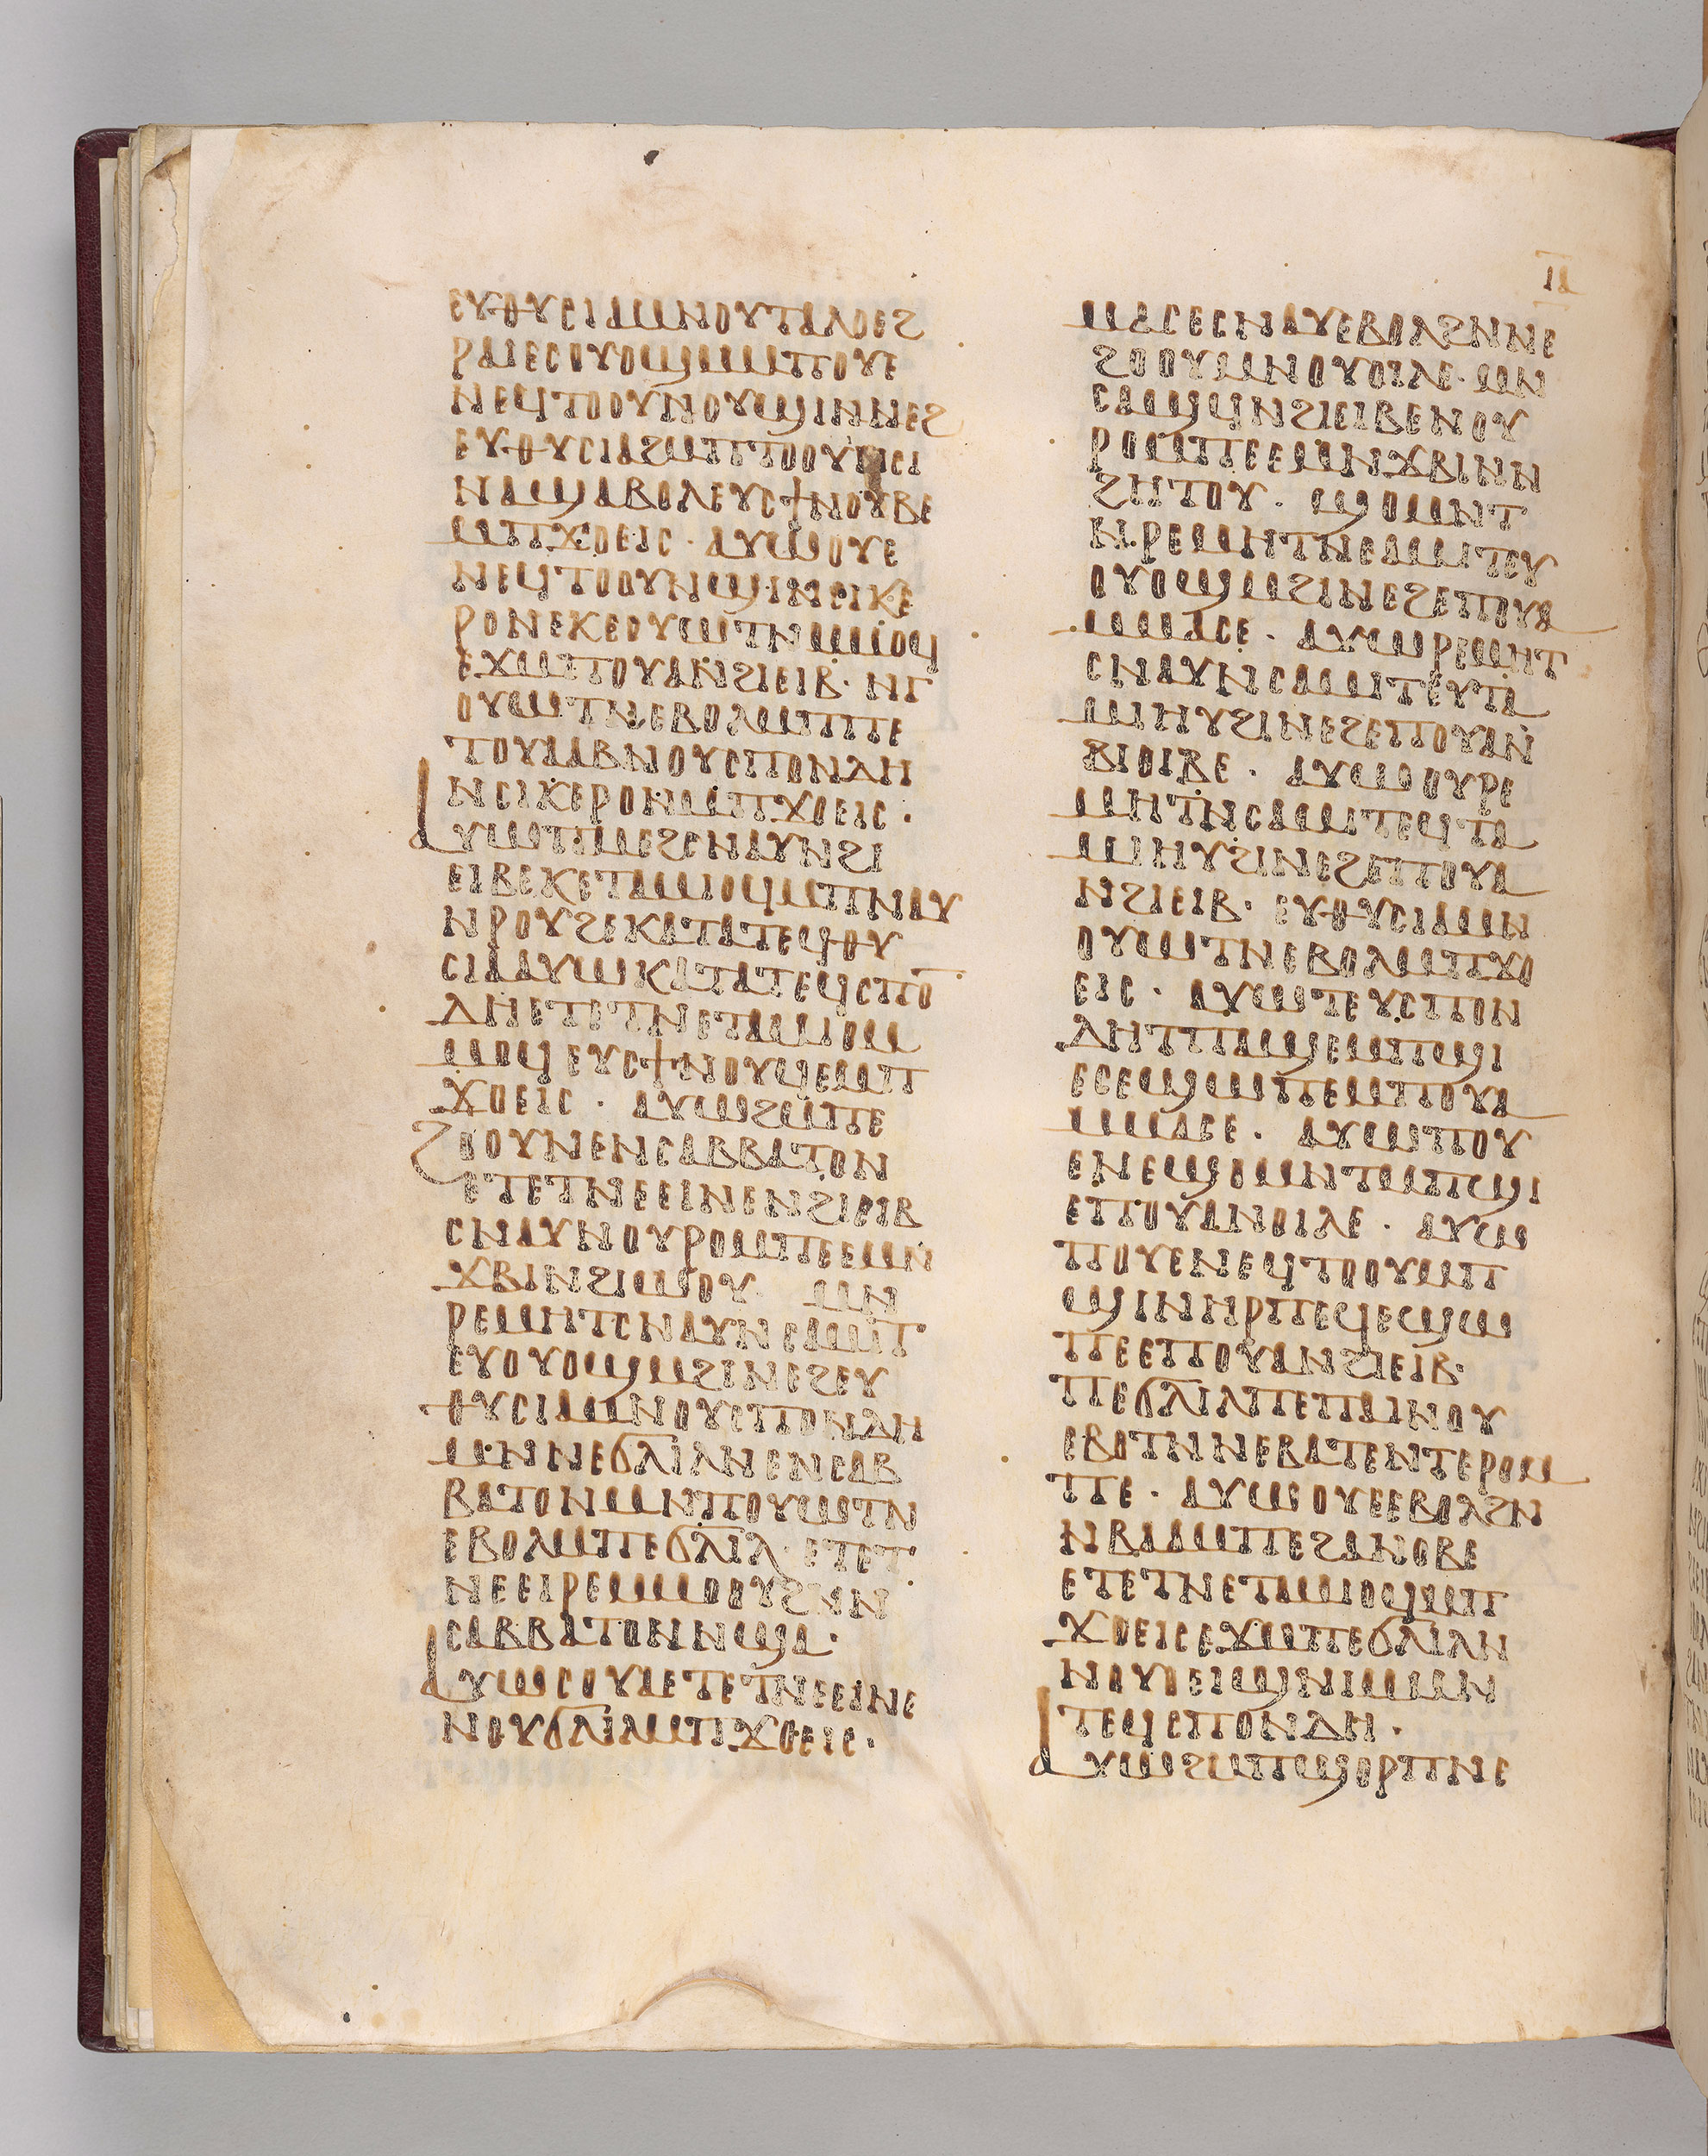 ⲓⲁ
ⲉⲩⲑⲩⲥⲓⲁⲙⲛⲟⲩⲧⲁⲗⲟⲉϩ
ⲣⲁⲓⲉⲥⲟⲩⲟϣⲙⲙⲡⲟⲩⲉ
ⲛⲉϥⲧⲟⲟⲩⲛⲟⲩϣⲓⲛⲛⲉϩ
ⲉⲩⲑⲩⲥⲓⲁϩⲙⲡⲧⲟⲟⲩⲛⲥⲓ
ⲛⲁϣⲁⲃⲟⲗⲉⲩⲥϯⲛⲟⲩⲃⲉ
ⲙⲡϫⲟⲉⲓⲥ · ⲁⲩⲱⲟⲩⲉ
ⲛⲉϥⲧⲟⲟⲩⲛϣⲓⲛⲥⲓⲕⲉ
ⲣⲟⲛⲉⲕⲉⲟⲩⲱⲧⲛⲙⲙⲟϥ
ⲉϫⲙⲡⲟⲩⲁⲛϩⲓⲉⲓⲃ · ⲛⲅ
ⲟⲩⲱⲧⲛⲉⲃⲟⲗⲙⲡⲡⲉ
ⲧⲟⲩⲁⲁⲃⲛⲟⲩⲥⲡⲟⲛⲇⲏ
ⲛⲥⲓⲕⲉⲣⲟⲛⲙⲡϫⲟⲉⲓⲥ ·
ⲁⲩⲱⲡⲙⲉϩⲥⲛⲁⲩⲛϩⲓ
ⲉⲓⲃⲉⲕⲉⲧⲁⲙⲓⲟϥⲙⲡⲛⲁⲩ
ⲛⲣⲟⲩϩⲉⲕⲁⲧⲁⲧⲉϥⲑⲩ
ⲥⲓⲁⲁⲩⲱⲕⲁⲧⲁⲧⲉϥⲥⲡⲟ̅
ⲇⲏⲉⲧⲉⲧⲛⲉⲧⲁⲙⲓⲟⲙ
ⲙⲟϥⲉⲩⲥϯⲛⲟⲩϥⲉⲙⲡ
ϫⲟⲉⲓⲥ · ⲁⲩⲱϩⲙⲡⲉ
ϩⲟⲟⲩⲛⲉⲛⲥⲁⲃⲃⲁⲧⲟⲛ
ⲉⲧⲉⲧⲛⲉⲉⲓⲛⲉⲛϩⲓⲉⲓⲃ
ⲥⲛⲁⲩⲛⲟⲩⲣⲟⲙⲡⲉⲉⲙⲛ
ϫⲃⲓⲛϩⲓⲱⲟⲩ · ⲙⲛ
ⲣⲉⲙⲏⲧⲥⲛⲁⲩⲛⲥⲁⲙⲓⲧ
ⲉⲩⲟⲩⲟϣⲙϩⲓⲛⲉϩⲉⲩ
ⲑⲩⲥⲓⲁⲙⲛⲟⲩⲥⲡⲟⲛⲇⲏ
ⲙⲛⲛⲉϭⲗⲓⲗⲛⲉⲛⲥⲁⲃ
ⲃⲁⲧⲟⲛⲙⲛⲡⲟⲩⲱⲧⲛ
ⲉⲃⲟⲗⲙⲡⲉϭⲗⲓⲗ · ⲉⲧⲉⲧ
ⲛⲉⲉⲓⲣⲉⲙⲙⲟⲟⲩϩⲛⲛ
ⲥⲁⲃⲃⲁⲧⲟⲛⲛϣⲁ ·
ⲁⲩⲱⲥⲟⲩⲁⲉⲧⲉⲧⲛⲉⲉⲓⲛⲉ
ⲛⲟⲩϭⲗⲓⲗⲙⲡϫⲟⲉⲓⲥ ·
ⲙⲁⲥⲉⲥⲛⲁⲩⲉⲃⲟⲗϩⲛⲛⲉ
ϩⲟⲟⲩⲙⲛⲟⲩⲟⲓⲗⲉ · ⲙⲛ
ⲥⲁϣϥⲛϩⲓⲉⲓⲃⲉⲛⲟⲩ
ⲣⲟⲙⲡⲉⲉⲙⲛϫⲃⲓⲛⲛ
ϩⲏⲧⲟⲩ · ϣⲟⲙⲛⲧ
ⲛⲣⲉⲙⲏⲧⲛⲥⲁⲙⲓⲧⲉⲩ
ⲟⲩⲟϣⲙϩⲓⲛⲉϩⲉⲡⲟⲩⲁ
ⲙⲙⲁⲥⲉ · ⲁⲩⲱⲣⲉⲙⲏⲧ
ⲥⲛⲁⲩⲛⲥⲁⲙⲓⲧⲉⲩⲧⲁ
ⲙⲏⲩϩⲓⲛⲉϩⲉⲡⲟⲩⲁⲛ
ϭⲓⲟⲓⲃⲉ · ⲁⲩⲱⲟⲩⲣⲉ
ⲙⲏⲧⲛⲥⲁⲙⲓⲧⲉϥⲧⲁ
ⲙⲏⲩϩⲓⲛⲉϩⲉⲡⲟⲩⲁ
ⲛϩⲓⲉⲓⲃ · ⲉⲩⲑⲩⲥⲓⲁⲙⲛ
ⲟⲩⲱⲧⲛⲉⲃⲟⲗⲙⲡϫⲟ
ⲉⲓⲥ · ⲁⲩⲱⲧⲉⲩⲥⲡⲟⲛ
ⲇⲏⲧⲡⲁϣⲉⲙⲡϣⲓ
ⲉⲥⲉϣⲱⲡⲉⲙⲡⲟⲩⲁ
ⲙⲙⲁⲥⲉ · ⲁⲩⲱⲡⲟⲩ
ⲉⲛⲉϣⲟⲙⲛⲧⲙⲡϣⲓ
ⲉⲡⲟⲩⲁⲛⲟⲓⲗⲉ · ⲁⲩⲱ
ⲡⲟⲩⲉⲛⲉϥⲧⲟⲟⲩⲙⲡ
ϣⲓⲛⲏⲣⲡⲉϥⲉϣⲱ
ⲡⲉⲉⲡⲟⲩⲁⲛϩⲓⲉⲓⲃ ·
ⲡⲉϭⲗⲓⲗⲡⲉⲡⲁⲓⲛⲟⲩ
ⲉⲃⲟⲧⲛⲛⲉⲃⲁⲧⲉⲛⲧⲉⲣⲟⲙ
ⲡⲉ · ⲁⲩⲱⲟⲩⲉⲉⲃⲟⲗϩⲛ
ⲛⲃⲁⲁⲙⲡⲉϩⲁⲛⲟⲃⲉ
ⲉⲧⲉⲧⲛⲉⲧⲁⲙⲓⲟϥⲙⲡ
ϫⲟⲉⲓⲥⲉϫⲙⲡⲉϭⲗⲓⲗⲛ
ⲛⲟⲩⲟⲉⲓϣⲛⲓⲙⲙⲛ
ⲧⲉϥⲥⲡⲟⲛⲇⲏ ·
ⲁⲩⲱϩⲙⲡϣⲟⲣⲡⲛⲥ